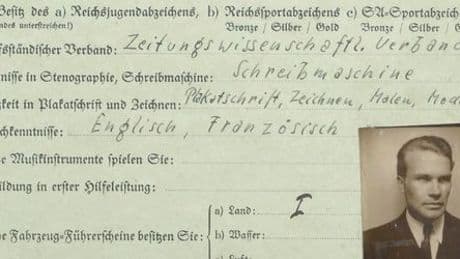 Besitz des a) Reichsjugendabzeichens, b) Reichssportabzeichens c) SA=Sportabzeichens
Bronze / Silber / Gold Bronze / Silber / G
ndes unterstreichen!)
fsständischer Verband: Zeitungswissenschaftl. Verband
nisse in Stenographie, Schreibmaschine: Schreibmaschine
gkeit in Plakatschrift und Zeichnen: Plakatschrift, Zeichnen, Malen, Mod
chkenntnisse: Englisch, Französisch
e Musikinstrumente spielen Sie:
ildung in erster Hilfeleistung:
a) Land: I
he Fahrzeug=Führerscheine besitzen Sie: b) Wasser:
c) Luft: